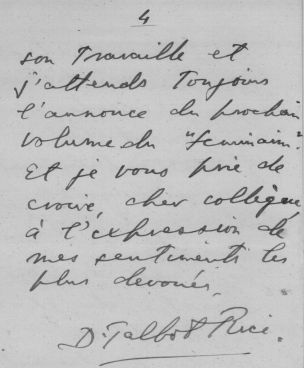 4
son travaille et
j'attends toujours
l'annonce du prochain
volume du "Seminaire".
Et je vous prie de
croire, cher collègue
à l'expression de
mes sentiments les
plus devoués.
D. Talbot Rice.